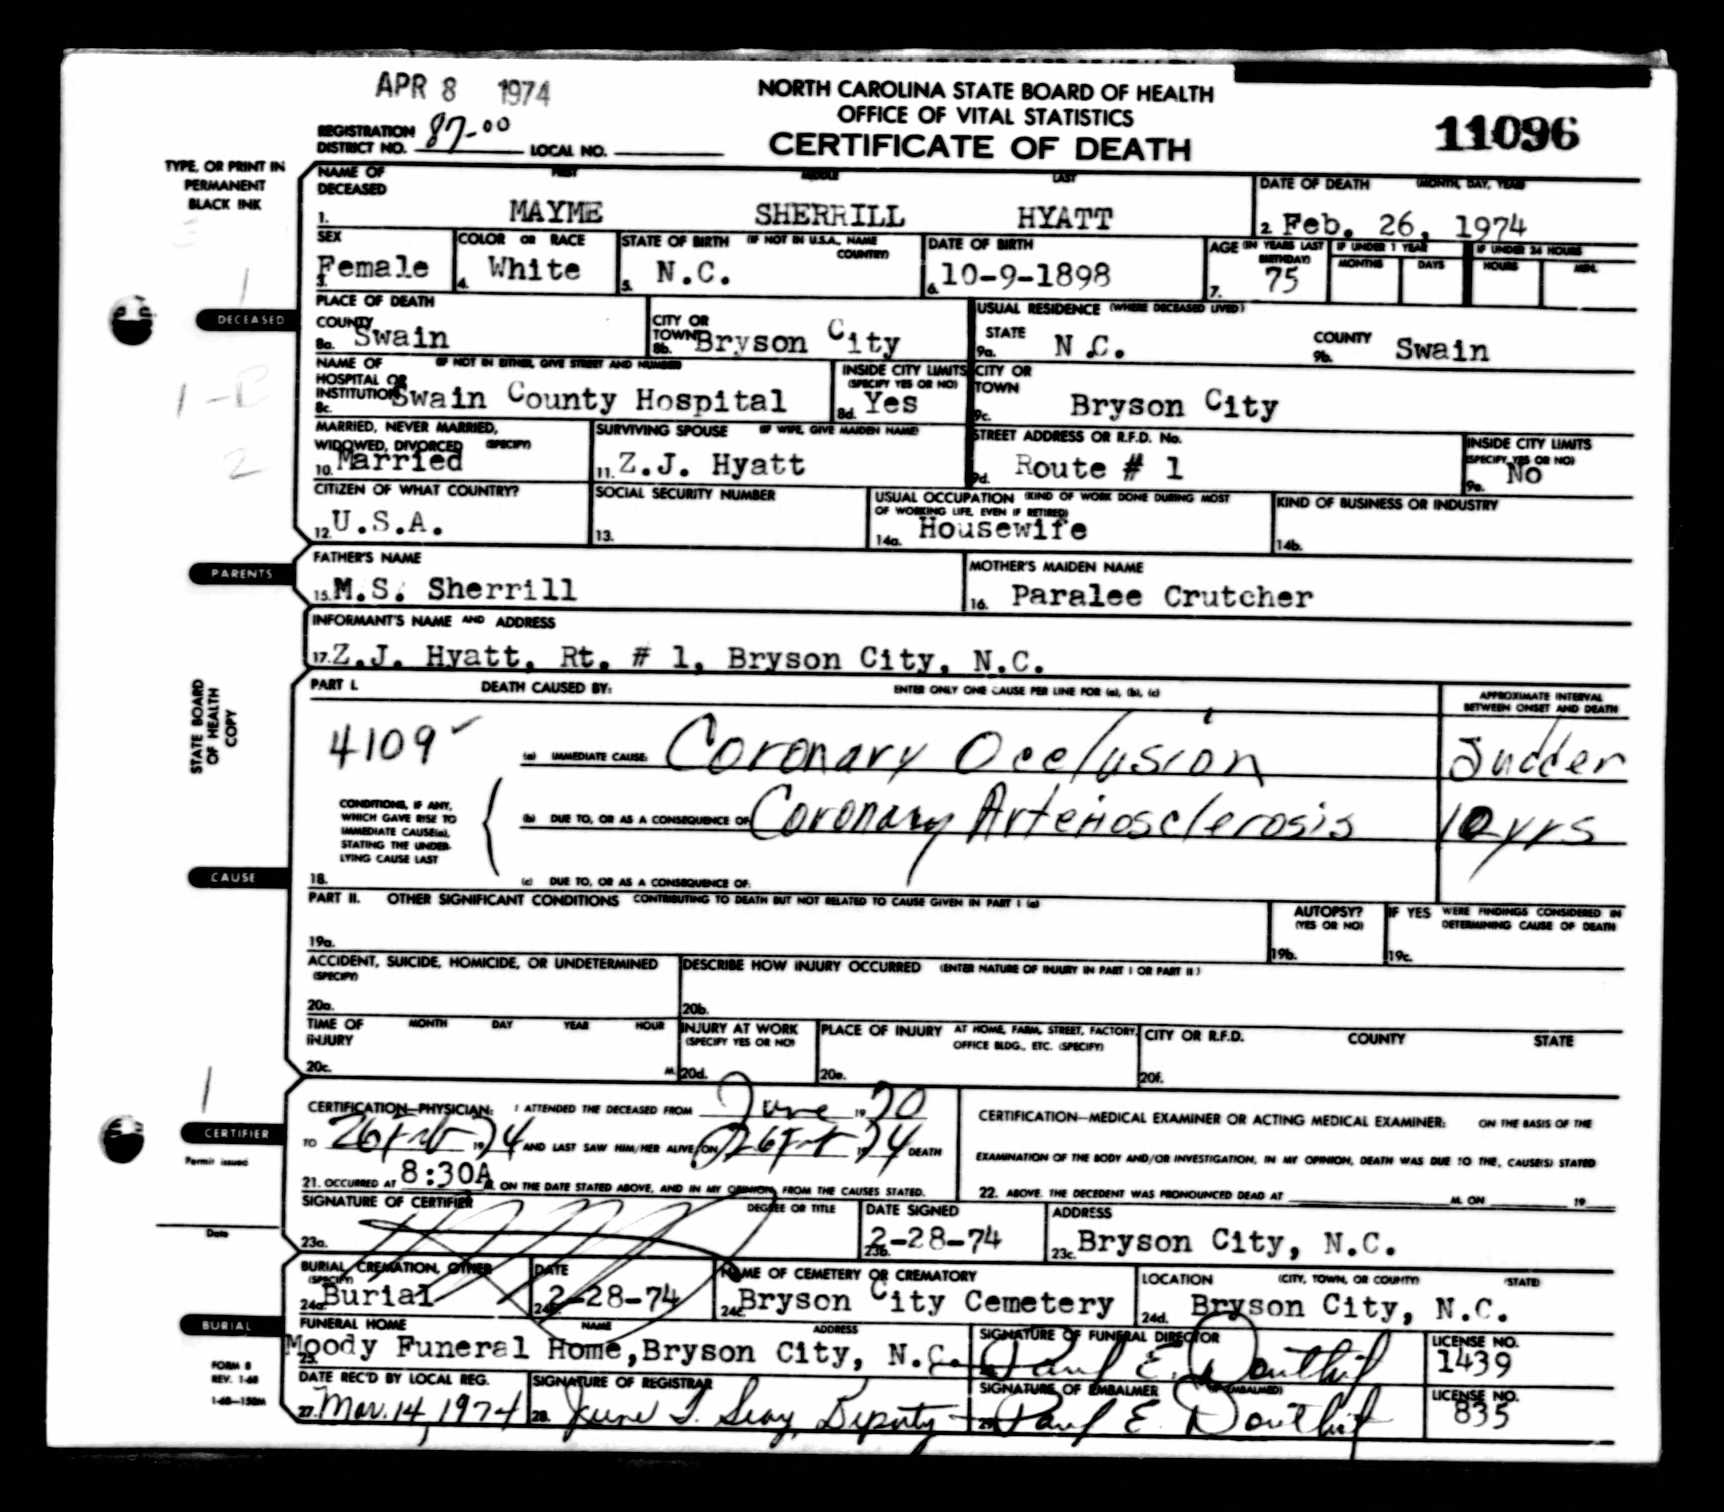 APR 8 1974
NORTH CAROLINA STATE BOARD OF HEALTH
OFFICE OF VITAL STATISTICS
CERTIFICATE OF DEATH
11096
REGISTRATION DISTRICT NO. 87-00 LOCAL NO.
TYPE, OR PRINT IN
PERMANENT
BLACK INK
NAME OF DECEASED FIRST MIDDLE LAST
1. MAYME SHERRILL HYATT
DATE OF DEATH (MONTH, DAY, YEAR)
2. Feb. 26, 1974
SEX
3. Female
COLOR OR RACE
4. White
STATE OF BIRTH (IF NOT IN U.S.A., NAME COUNTRY)
5. N.C.
DATE OF BIRTH
6. 10-9-1898
AGE (IN YEARS LAST BIRTHDAY)
7. 75
IF UNDER 1 YEAR MONTHS DAYS
IF UNDER 24 HOURS HOURS MIN.
DECEASED
PLACE OF DEATH
COUNTY
8a. Swain
CITY OR TOWN
8b. Bryson City
USUAL RESIDENCE (WHERE DECEASED LIVED)
STATE
9a. N.C.
COUNTY
9b. Swain
NAME OF HOSPITAL OR INSTITUTION (IF NOT IN EITHER, GIVE STREET AND NUMBER)
8c. Swain County Hospital
INSIDE CITY LIMITS (SPECIFY YES OR NO)
8d. Yes
CITY OR TOWN
9c. Bryson City
MARRIED, NEVER MARRIED, WIDOWED, DIVORCED (SPECIFY)
10. Married
SURVIVING SPOUSE (IF WIFE, GIVE MAIDEN NAME)
11. Z.J. Hyatt
STREET ADDRESS OR R.F.D. No.
9d. Route # 1
INSIDE CITY LIMITS (SPECIFY YES OR NO)
9e. No
CITIZEN OF WHAT COUNTRY?
12. U.S.A.
SOCIAL SECURITY NUMBER
13.
USUAL OCCUPATION (KIND OF WORK DONE DURING MOST OF WORKING LIFE, EVEN IF RETIRED)
14a. Housewife
KIND OF BUSINESS OR INDUSTRY
14b.
PARENTS
FATHER'S NAME
15. M.S. Sherrill
MOTHER'S MAIDEN NAME
16. Paralee Crutcher
INFORMANT'S NAME AND ADDRESS
17. Z.J. Hyatt, Rt. # 1, Bryson City, N.C.
STATE BOARD
OF HEALTH
COPY
PART I. DEATH CAUSED BY: ENTER ONLY ONE CAUSE PER LINE FOR (a), (b), (c)
APPROXIMATE INTERVAL BETWEEN ONSET AND DEATH
4109
(a) IMMEDIATE CAUSE: Coronary Occlusion Sudden
CONDITIONS, IF ANY, WHICH GAVE RISE TO IMMEDIATE CAUSE(a), STATING THE UNDERLYING CAUSE LAST
(b) DUE TO, OR AS A CONSEQUENCE OF: Coronary Arteriosclerosis 10 yrs
CAUSE
18. (c) DUE TO, OR AS A CONSEQUENCE OF:
PART II. OTHER SIGNIFICANT CONDITIONS CONTRIBUTING TO DEATH BUT NOT RELATED TO CAUSE GIVEN IN PART I (a)
19a.
AUTOPSY? (YES OR NO)
19b.
IF YES WERE FINDINGS CONSIDERED IN DETERMINING CAUSE OF DEATH
19c.
ACCIDENT, SUICIDE, HOMICIDE, OR UNDETERMINED (SPECIFY)
20a.
DESCRIBE HOW INJURY OCCURRED (ENTER NATURE OF INJURY IN PART I OR PART II)
20b.
TIME OF INJURY MONTH DAY YEAR HOUR
20c. M.
INJURY AT WORK (SPECIFY YES OR NO)
20d.
PLACE OF INJURY AT HOME, FARM, STREET, FACTORY, OFFICE BLDG., ETC. (SPECIFY)
20e.
CITY OR R.F.D. COUNTY STATE
20f.
CERTIFIER
Permit issued
Date
CERTIFICATION—PHYSICIAN: I ATTENDED THE DECEASED FROM June 1970
TO 26 Feb 1974 AND LAST SAW HIM/HER ALIVE ON 26 Feb 1974 DEATH
21. OCCURRED AT 8:30A M. ON THE DATE STATED ABOVE, AND IN MY OPINION, FROM THE CAUSES STATED.
CERTIFICATION—MEDICAL EXAMINER OR ACTING MEDICAL EXAMINER: ON THE BASIS OF THE
EXAMINATION OF THE BODY AND/OR INVESTIGATION, IN MY OPINION, DEATH WAS DUE TO THE, CAUSE(S) STATED
22. ABOVE. THE DECEDENT WAS PRONOUNCED DEAD AT M. ON 19
SIGNATURE OF CERTIFIER DEGREE OR TITLE
23a.
DATE SIGNED
23b. 2-28-74
ADDRESS
23c. Bryson City, N.C.
BURIAL
BURIAL, CREMATION, OTHER (SPECIFY)
24a. Burial
DATE
24b. 2-28-74
NAME OF CEMETERY OR CREMATORY
24c. Bryson City Cemetery
LOCATION (CITY, TOWN, OR COUNTY) (STATE)
24d. Bryson City, N.C.
FUNERAL HOME NAME ADDRESS
25. Moody Funeral Home, Bryson City, N.C.
SIGNATURE OF FUNERAL DIRECTOR
Paul E. Douthit
LICENSE NO.
1439
FORM 8
REV. 1-68
1-68—150M
DATE REC'D BY LOCAL REG.
27. Mar. 14, 1974
SIGNATURE OF REGISTRAR
28. June T. Seay, Deputy
SIGNATURE OF EMBALMER (IF EMBALMED)
29. Paul E. Douthit
LICENSE NO.
835